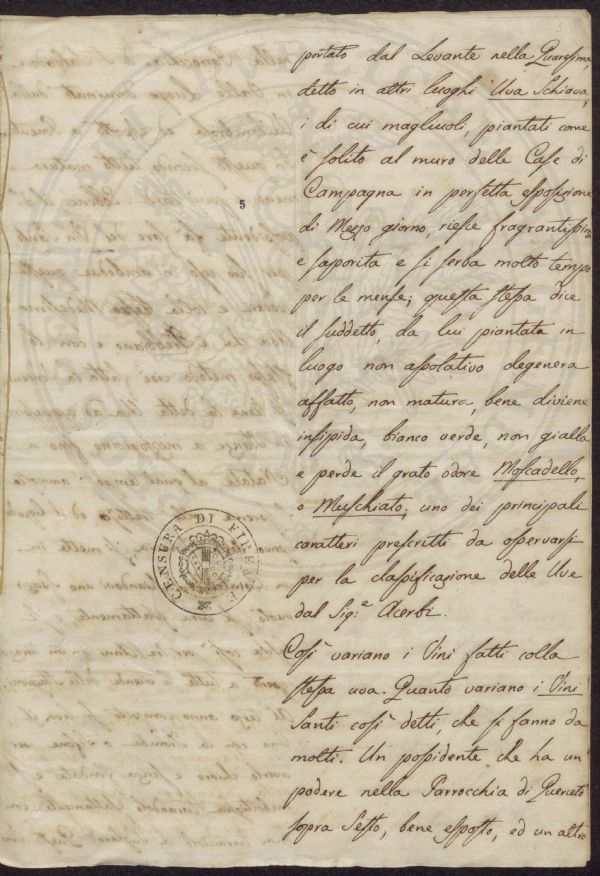 5
portato dal Levante nella Quaresima,
detto in altri luoghi Uva Schiava,
i di cui magliuoli, piantati come
è solito al muro delle Case di
Campagna in perfetta esposizione
di Mezzo giorno, riesce fragrantissima
e saporita e si serba molto tempo
per le mense; questa stessa dice
il suddetto, da lui piantata in
luogo non assolativo degenera
affatto, non matura, bene diviene
insipida, bianco verde, non gialla
e perde il grato odore Moscadello,
o Muschiato; uno dei principali
caratteri prescritti da osservarsi
per la classificazione delle Uve
dal Sig.e Acerbi.
Così variano i Vini fatti colla
stessa uva. Quanto variano i Vini
Santi così detti, che si fanno da
molti. Un possidente che ha un
podere nella Parrocchia di Querceto
sopra Sesto, bene esposto, ed un altro
CENSURA DI FIRENZE